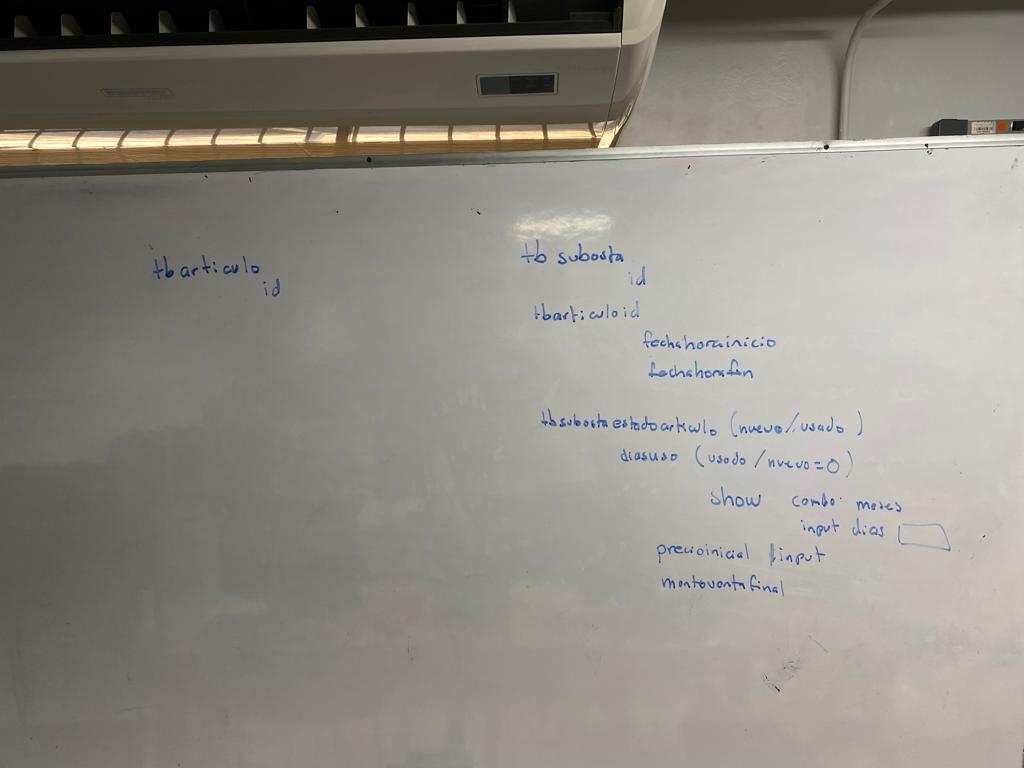 tbarticulo
id
tb subasta
id
tbarticuloid
fechahorainicio
fechahorafin
tbsubastaestadoarticulo (nuevo/usado)
diasuso (usado/nuevo=0)
show combo: meses
input dias
precioinicial input
montoventafinal